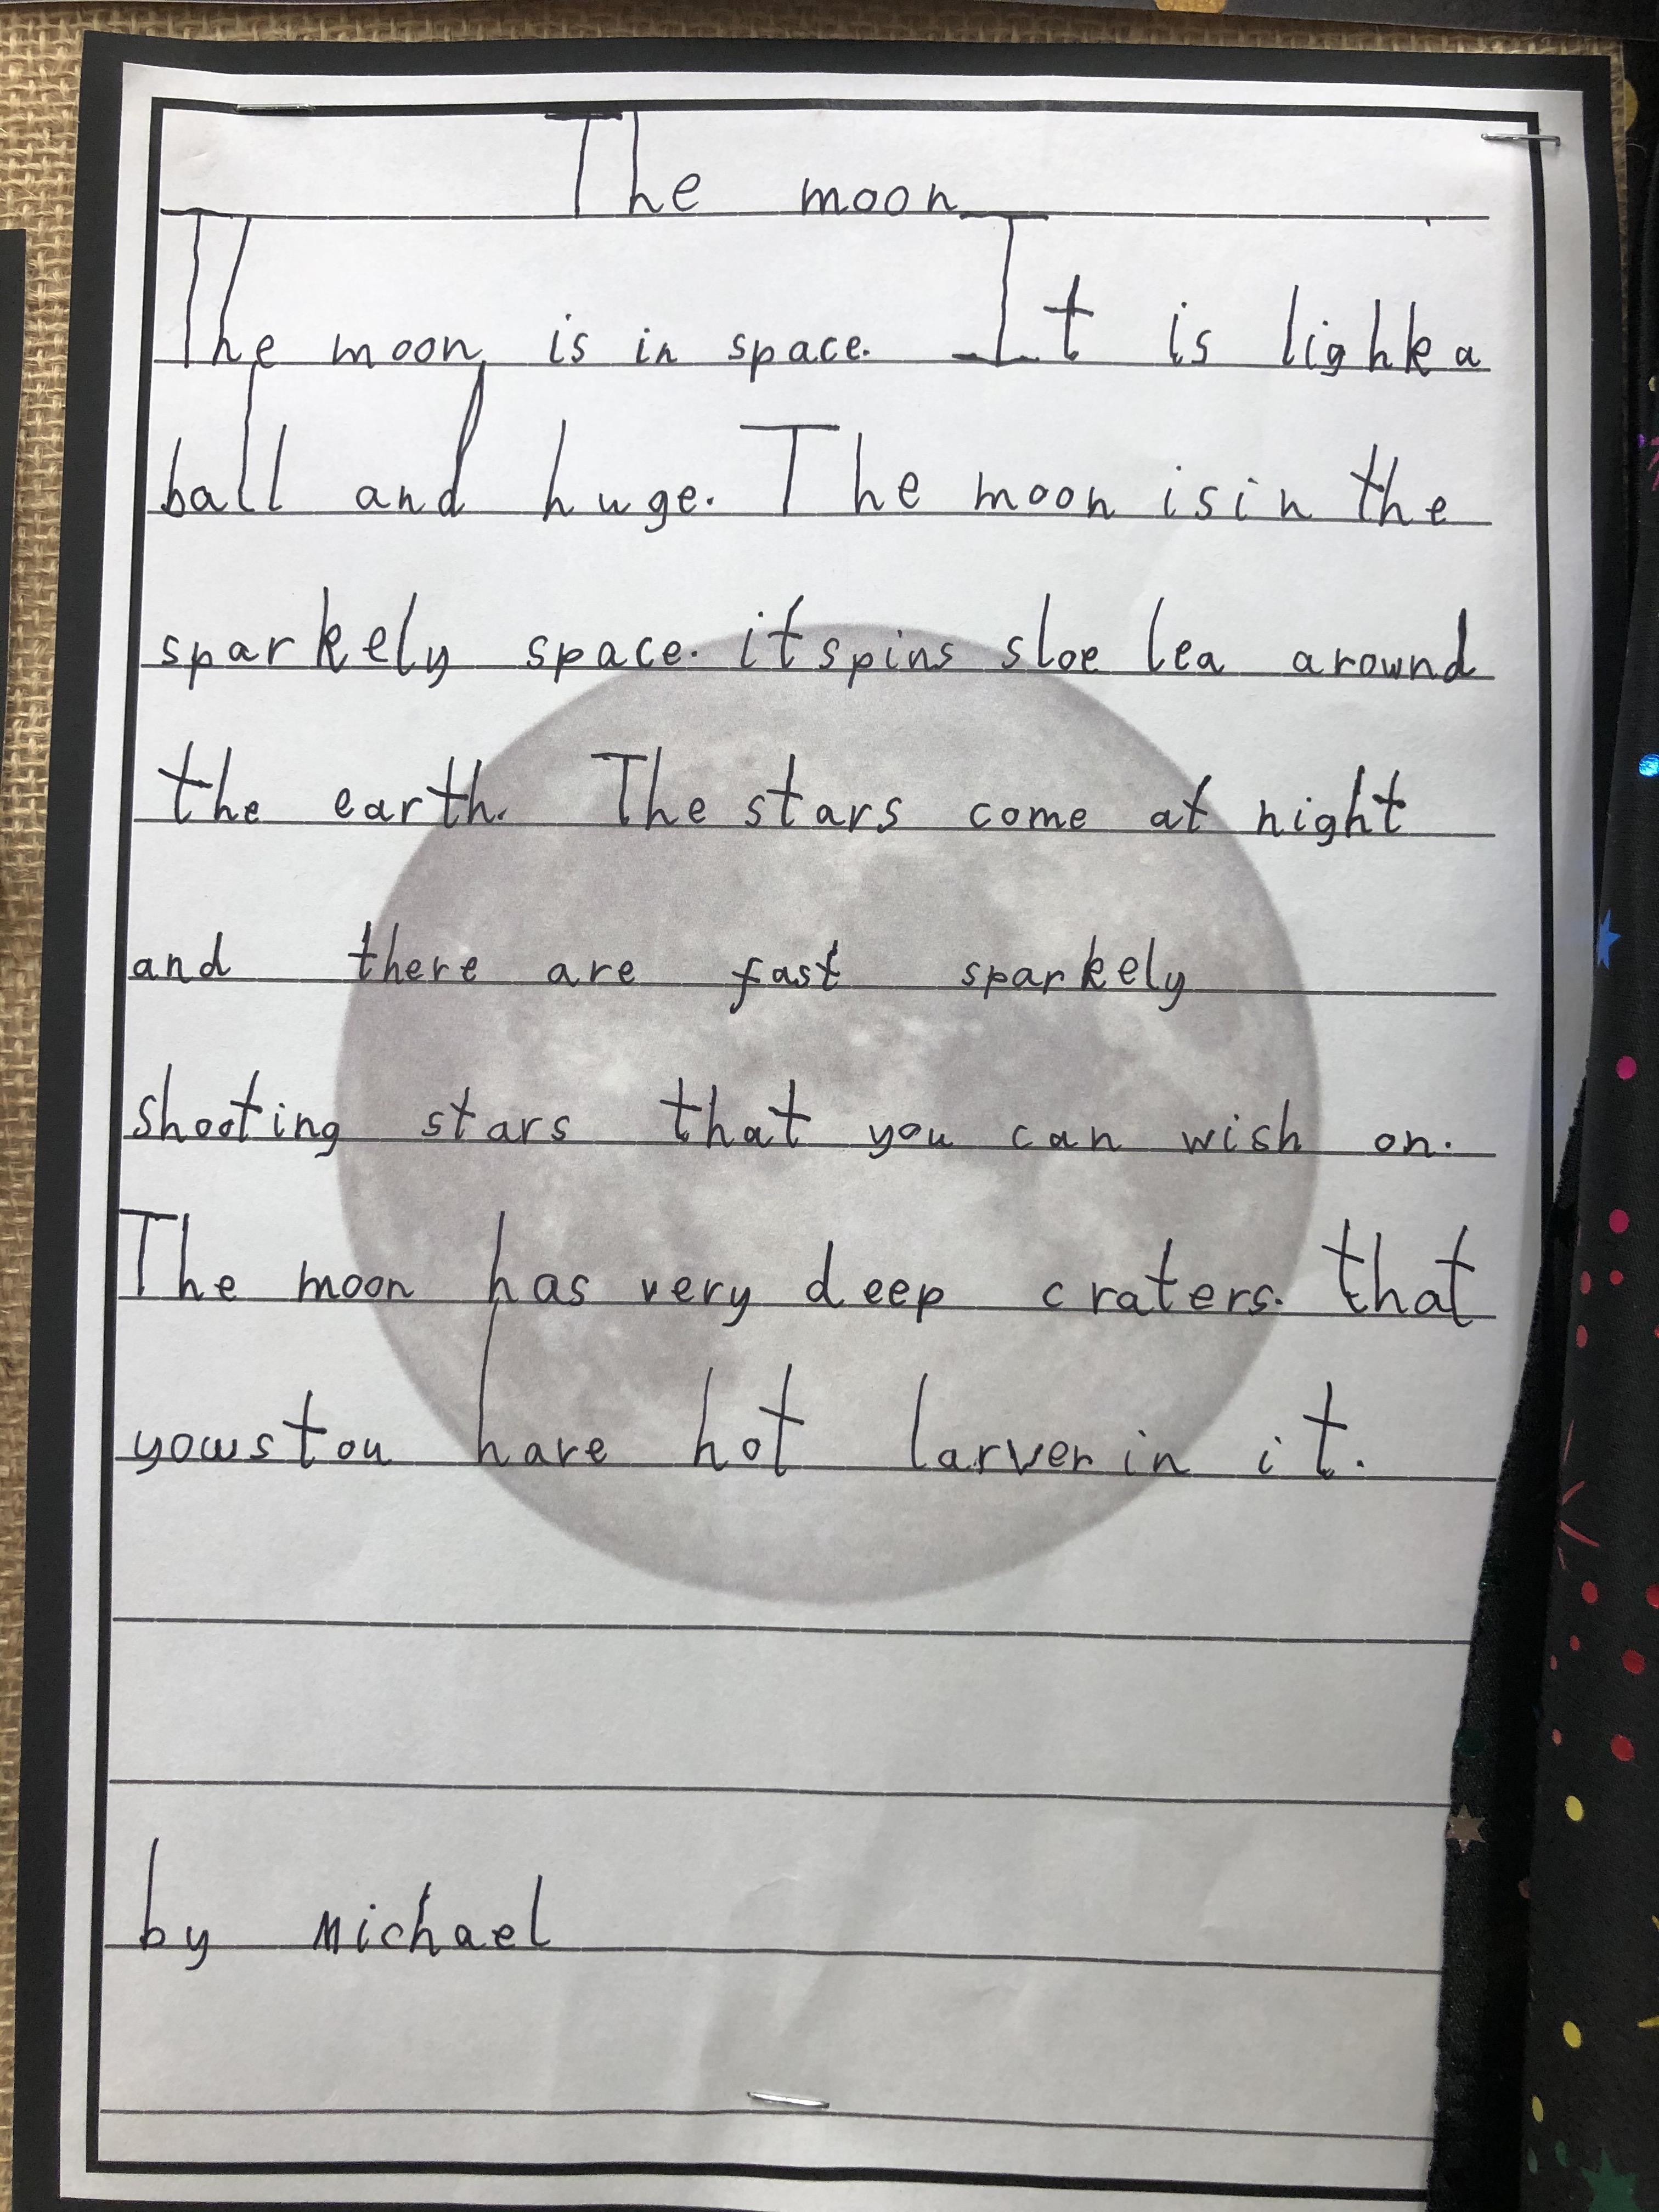 The moon
The moon is in space. It is lighke a
ball and huge. The moon is in the
sparkely space. it spins sloe lea arownd
the earth. The stars come at night
and there are fast sparkely
shooting stars that you can wish on.
The moon has very deep craters. that
yowstou have hot larver in it.
by michael